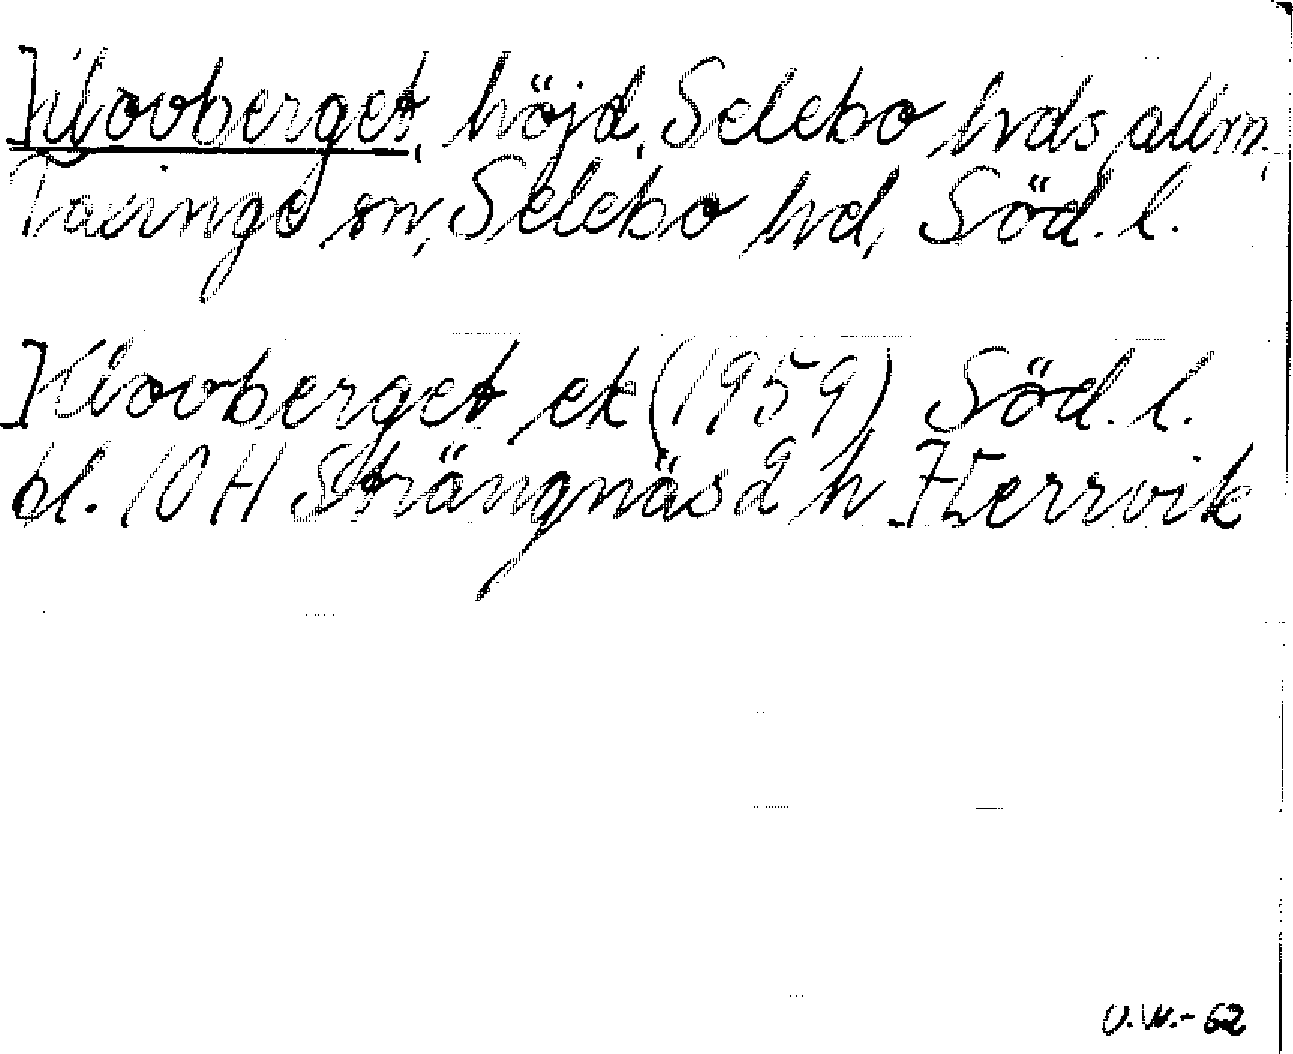 Klovberget, höjd, Selebo hds allm.,
Taxinge sn, Selebo hd, Söd. l.
Klovberget ek (1959) Söd. l.
bl. 10 H Strängnäs d h Herrvik
U.W.-62